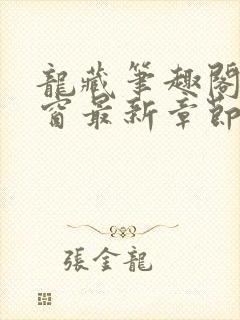 龍藏筆趣閣
窗最新章節
張金龍